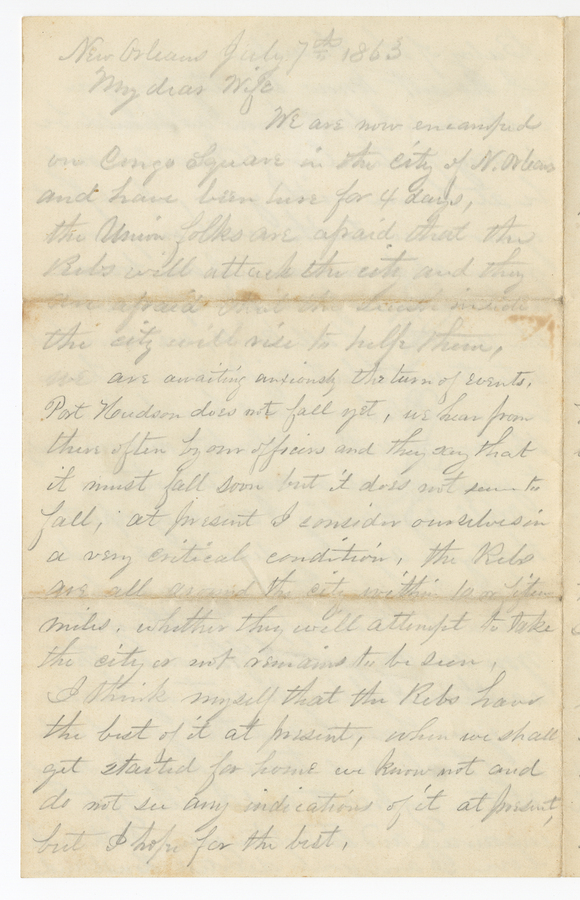 New Orleans July 7th 1863
My dear Wife
We are now encamped
on Congo Square in the city of N. Orleans
and have been here for 4 days,
the Union folks are afraid that the
Rebs will attack the city and they
are afraid that the secesh inside
the city will rise to help them,
we are awaiting anxiously the turn of events.
Port Hudson does not fall yet, we hear from
there often by our officers and they say that
it must fall soon but it does not seem to
fall, at present I consider ourselves in
a very critical condition, the Rebs
are all around the city within 10 or fifteen
miles. whether they will attempt to take
the city or not remains to be seen,
I think myself that the Rebs have
the best of it at present, when we shall
get started for home we know not and
do not see any indications of it at present,
but I hope for the best,